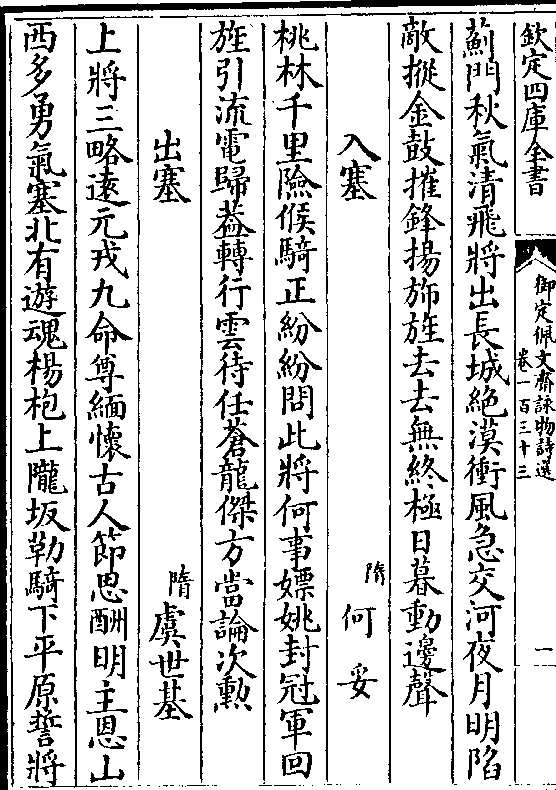 欽定四庫全書
御定佩文齋詠物詩選
卷一百三十三
一
薊門秋氣清飛將出長城絶漠衝風急交河夜月明陷
敵摐金鼓摧鋒揚斾旌去去無終極日暮動邊聲
入塞
隋何妥
桃林千里險候騎正紛紛問此將何事嫖姚封冠軍回
旌引流電歸葢轉行雲待任蒼龍傑方當論次勲
出塞
隋虞世基
上將三略遠元戎九命尊緬懷古人節思酬明主恩山
西多勇氣塞北有遊魂楊枹上隴坂勒騎下平原誓將